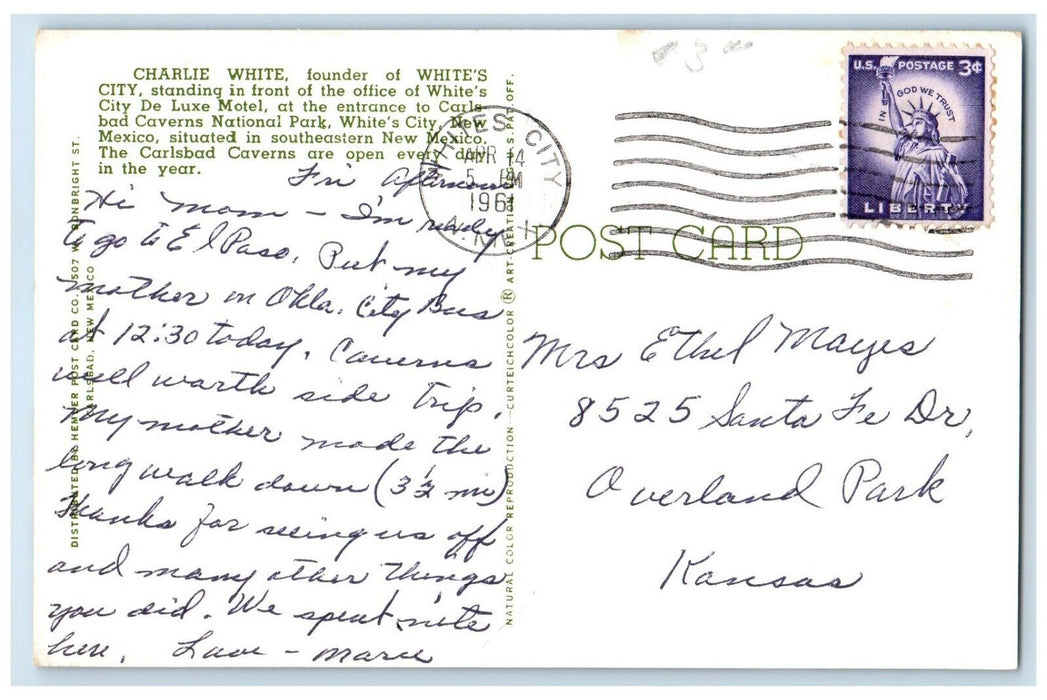 CHARLIE WHITE, founder of WHITE'S
CITY, standing in front of the office of White's
City De Luxe Motel, at the entrance to Carls
bad Caverns National Park, White's City, New
Mexico, situated in southeastern New Mexico.
The Carlsbad Caverns are open every day
in the year.
Fri Afternoon
Hi Mom - I'm ready
to go to El Paso. Put my
mother on Okla. City Bus
at 12:30 today. Caverns
well worth side trip.
My mother made the
long walk down (3½ mi)
Thanks for seeing us off
and many other things
you did. We spent nite
here. Love - Marie
DISTRIBUTED BY HEMLER POST CARD CO., 507 N. BONBRIGHT ST.
CARLSBAD, NEW MEXICO
NATURAL COLOR REPRODUCTION—CURTEICHCOLOR ® ART-CREATION U.S. PAT. OFF.
WHITES CITY
APR 14
5 PM
1961
N. M.
POST CARD
U.S. POSTAGE 3¢
IN GOD WE TRUST
LIBERTY
3
Mrs Ethel Mayes
8525 Santa Fe Dr,
Overland Park
Kansas